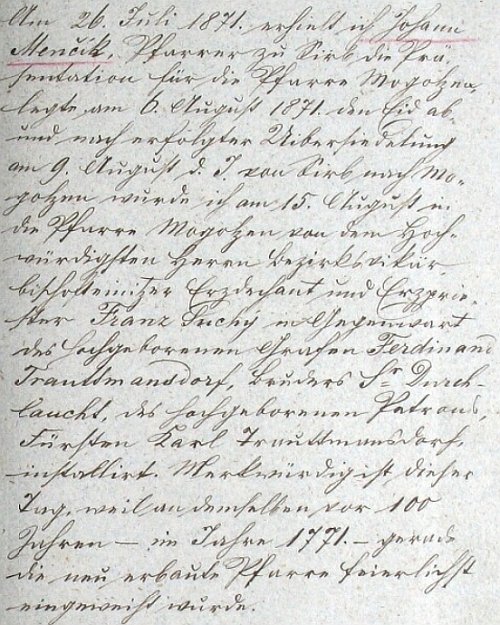 Am 26. Juli 1871. erhielt ich Johann
Menčik, Pfarrer zu Sirb die Prä-
sentation für die Pfarre Mogolzen,
legte am 6. August 1871. den Eid ab,
und nach erfolgter Uibersiedelung
am 9. August d. J. von Sirb nach Mo-
golzen wurde ich am 15. August in
die Pfarre Mogolzen von dem Hoch-
würdigsten Herrn Bezirksvikär
bischofteinitzer Erzdechant und Erzprie-
ster Franz Suchý in Gegenwart
des hochgeborenen Grafen Ferdinand
Trauttmansdorf, Bruders Sr Durch-
laucht, des hochgeborenen Patrons,
Fürsten Karl Trauttmansdorf,
installirt. Merkwürdig ist dieser
Tag, weil an demselben vor 100
Jahren – im Jahre 1771. – gerade
die neu erbaute Pfarre feierlichst
eingeweiht wurde.